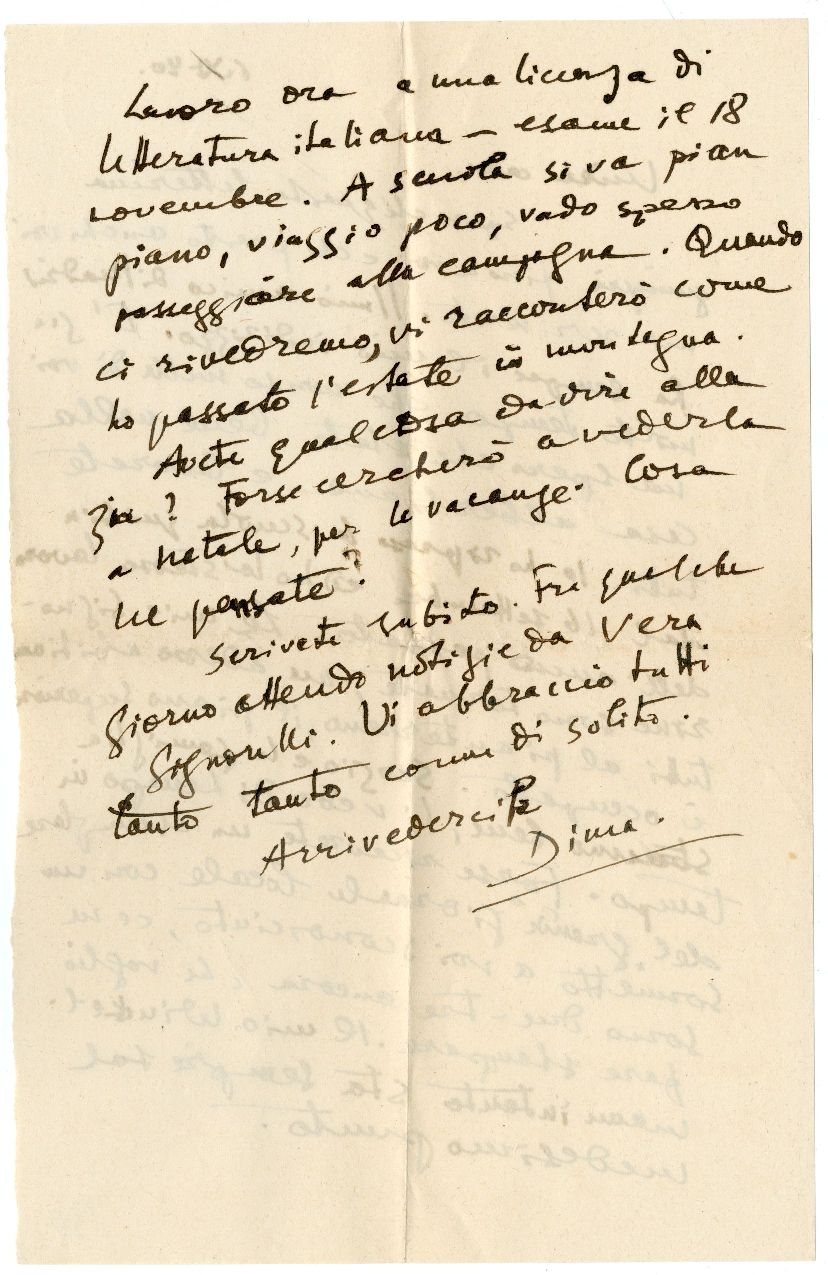 Lavoro ora a una licenza di
letteratura italiana – esame il 18
novembre. A scuola si va pian
piano, viaggio poco, vado spesso
passeggiare alla campagna. Quando
ci rivedremo, vi racconterò come
ho passato l'estate in montagna.
Avete qualcosa da dire alla
zia? Forse cercherò a vederla
a natale, per le vacanze. Cosa
ne pensate?
Scrivete subito. Fra qualche
giorno attendo notizie da Vera
Signorelli. Vi abbraccio tutti
tanto tanto come di solito.
Arrivederci
Dima.